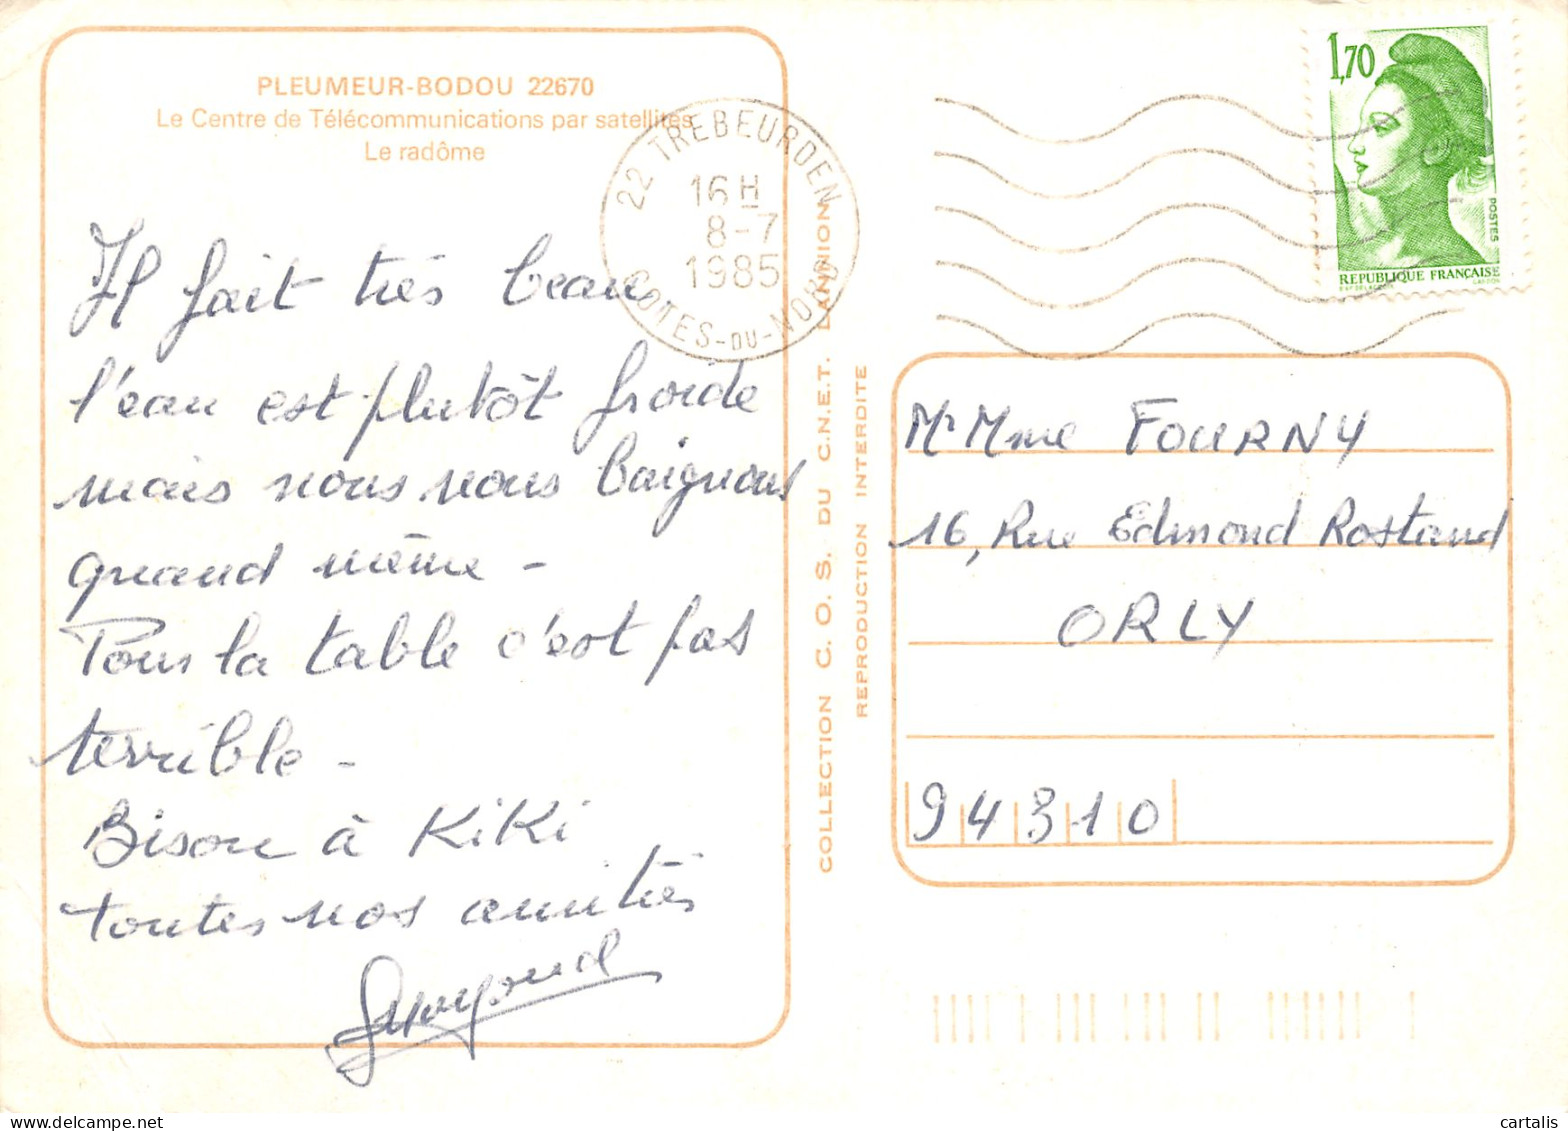 PLEUMEUR-BODOU 22670
Le Centre de Télécommunications par satellites
Le radôme
22 TREBEURDEN
16 H
8-7
1985
COTES-DU-NORD
1,70
POSTES
REPUBLIQUE FRANÇAISE
Il fait très beau
l'eau est plutôt froide
mais nous nous baignons
quand même -
Pour la table c'est pas
terrible -
Bisou à KiKi
toutes nos amitiés
COLLECTION C. O. S. DU C.N.E.T. LANNION
REPRODUCTION INTERDITE
Mr Mme FOURNY
16, Rue Edmond Rostand
ORLY
94310
cartalis